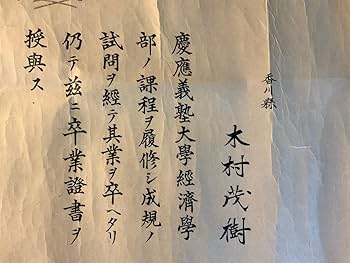 香川縣
木村茂樹
慶應義塾大學經濟學
部ノ課程ヲ履修シ成規ノ
試問ヲ經テ其業ヲ卒ヘタリ
仍テ茲ニ卒業證書ヲ
授與ス